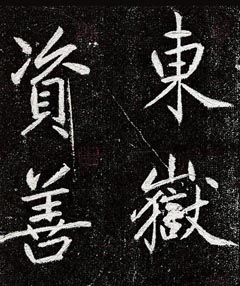 東嶽
資善